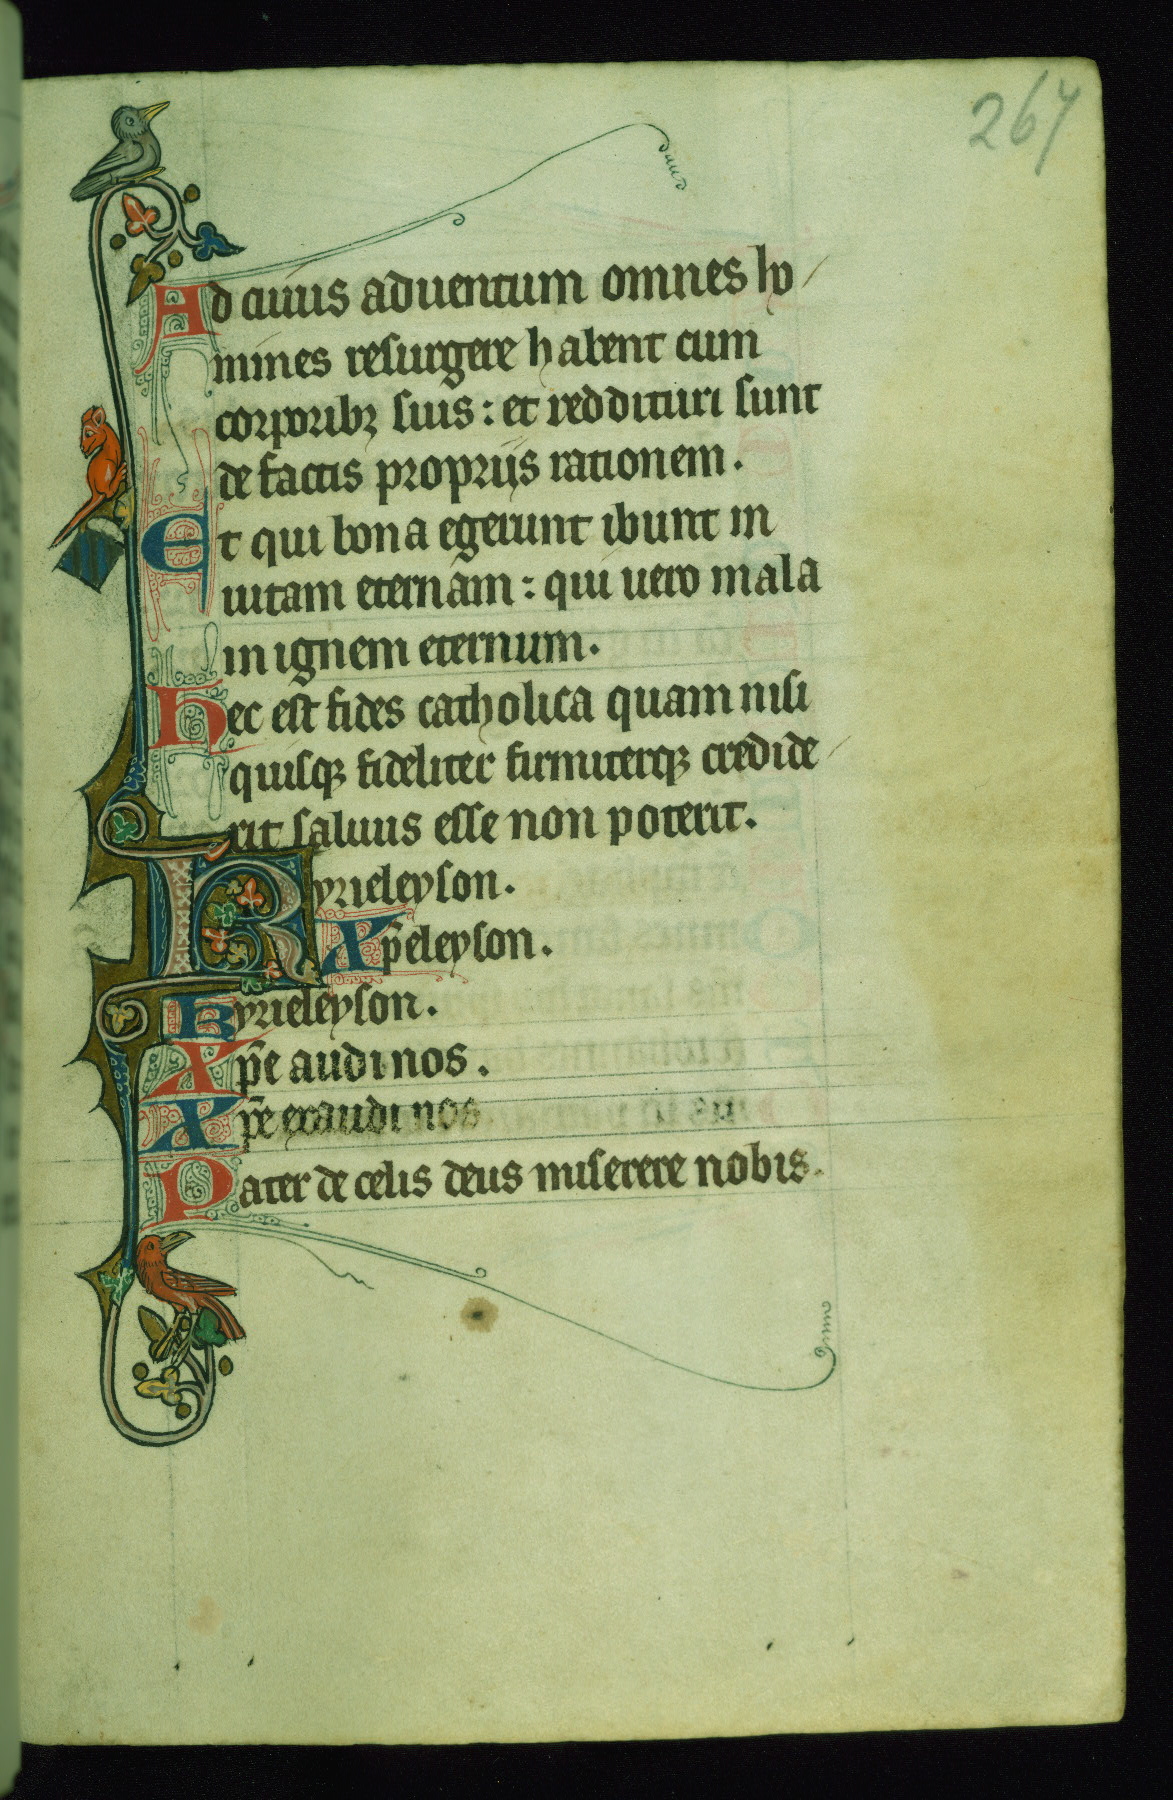 267
Ad cuius aduentum omnes ho
mines resurgere habent cum
corporibꝫ suis : et reddituri sunt
de factis propriis rationem .
Et qui bona egerunt ibunt in
uitam eternam : qui uero mala
in ignem eternum .
Hec est fides catholica quam nisi
quisqꝫ fideliter firmiterqꝫ credide
rit saluus esse non poterit .
Kyrieleyson .
Xp̄eleyson .
Kyrieleyson .
Xp̄e audi nos .
Xp̄e exaudi nos
Pater de celis deus miserere nobis .